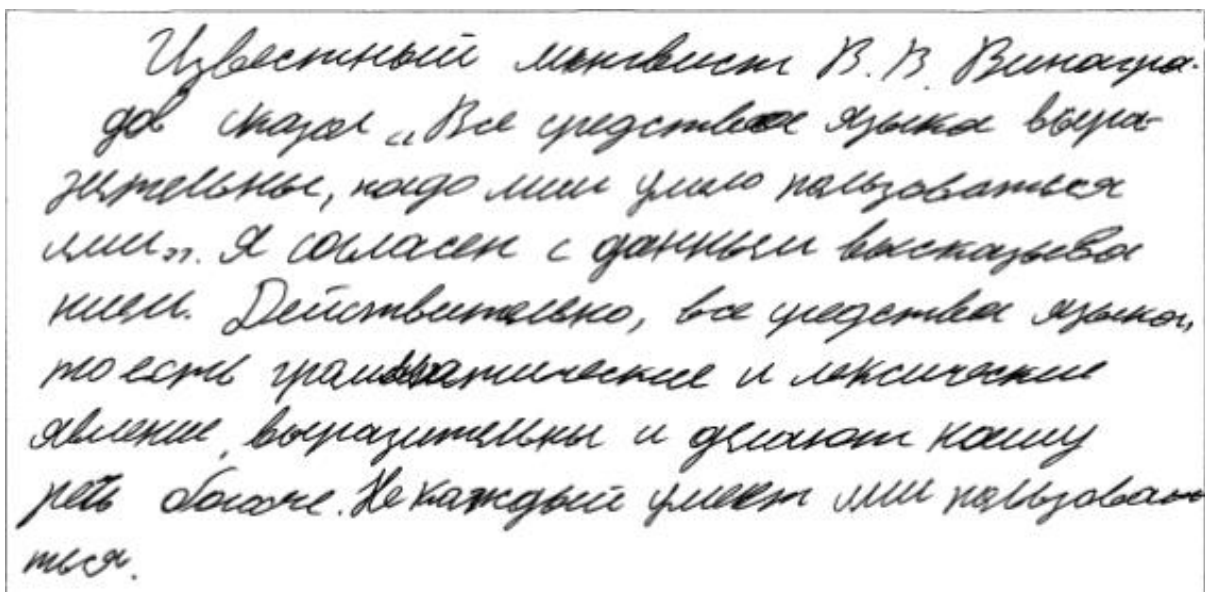 Известный лингвист В. В. Виногра-
дов сказал „Все средства языка выра-
зительны, надо лишь умело пользоваться
ими”. Я согласен с данным высказыва
нием. Действительно, все средства языка,
то есть грамматические и лексические
явление, выразительны и делают нашу
речь богаче. Не каждый умеет ими пользова-
ться.